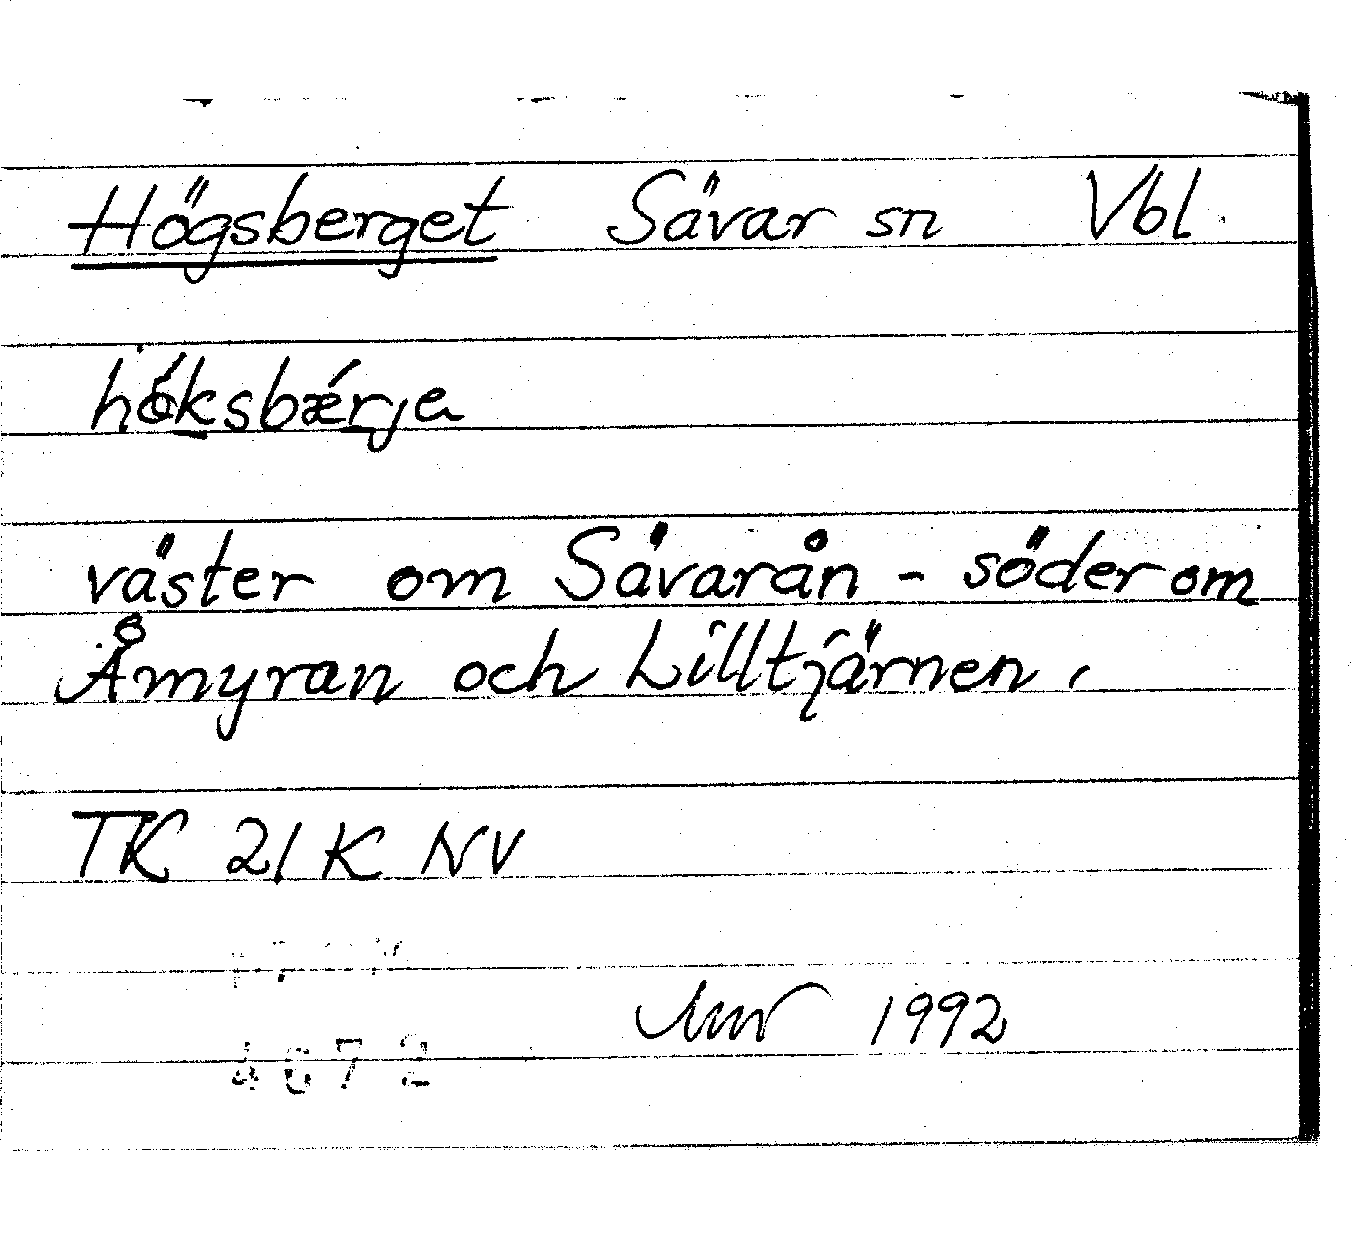 Högsberget Sävar sn Vbl.
hö́ksbǽrja
väster om Sävarån - söder om
Åmyran och Lilltjärnen.
TK 21 K NV
1992
4672